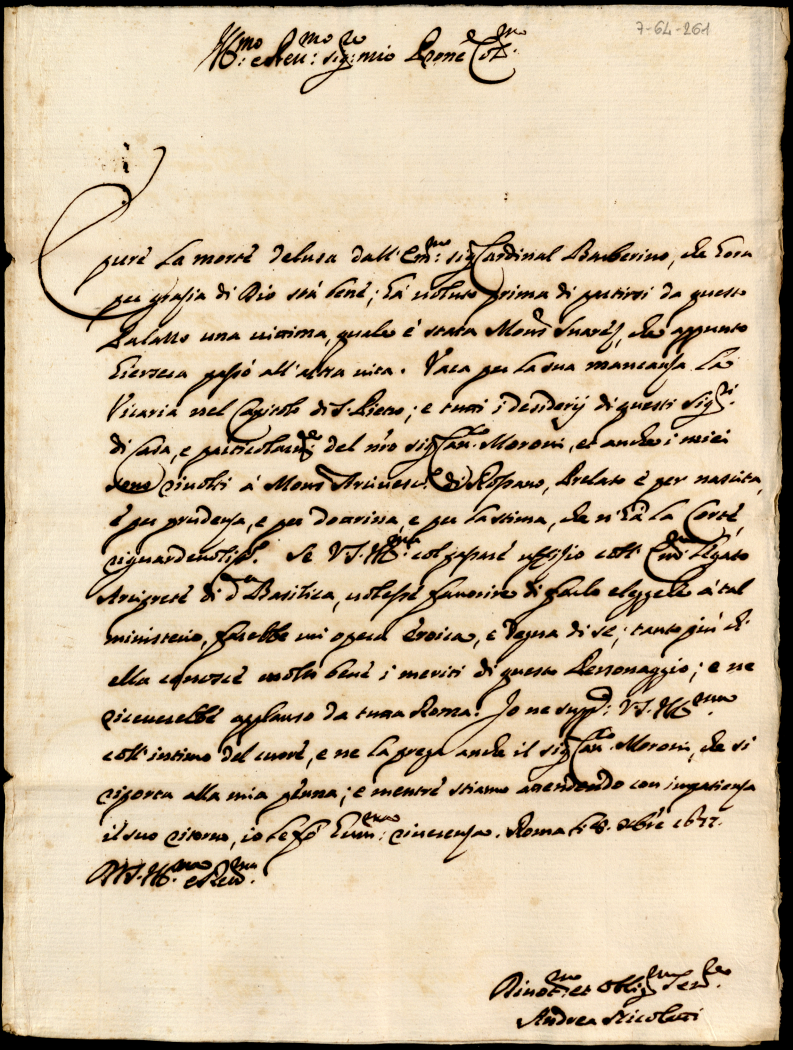 7-64-261
Ill:mo e Reu:mo sig:re mio Prone Col:mo
pure la morte delusa dall'Em:mo sig:r Cardinal Barberino, che hora
per grazia di Dio stà bene; hà uoluto prima di partirsi da questo
Palazzo una uittima, quale è stata Mons:r Suarez, che appunto
hiersera passò all'altra uita. Vaca per la sua mancanza la
Vicaria nel Capitolo di S. Pietro; e tutti i desiderij di questi Sig:ri
di Casa, e particolarm:te del n'ro sig:r Can:co Moroni, et anche i miei
sono riuolti à Mons:r Arciuesc:o di Rossano, Prelato e per nascita,
e per prudenza, e per dottrina, e per la stima, che n'hà la Corte,
riguardeuoliss:o. Se V.S. Ill:ma col passare uffizio coll'Em:o Legato
Arciprete di d:a Basilica, uolesse fauorire di farlo eleggere à tal
ministerio, farebbe un'opera heroica, e degna di se; tanto più ch'
ella conosce molto bene i meriti di questo Personaggio; e ne
riceuerebbe applauso da tutta Roma. Io ne supp:co V.S. Ill:ma
coll'intimo del cuore, e ne la prega anche il sig:r Can:co Moroni, che si
riporta alla mia penna; e mentre stiamo attendendo con impatienza
il suo ritorno, io le fò hum:ma riuerenza. Roma li 8. xbre 1677.
Di V.S. Ill:ma e Reu:ma
Diuot:mo et Oblig:mo Seru:re
Andrea Nicoletti